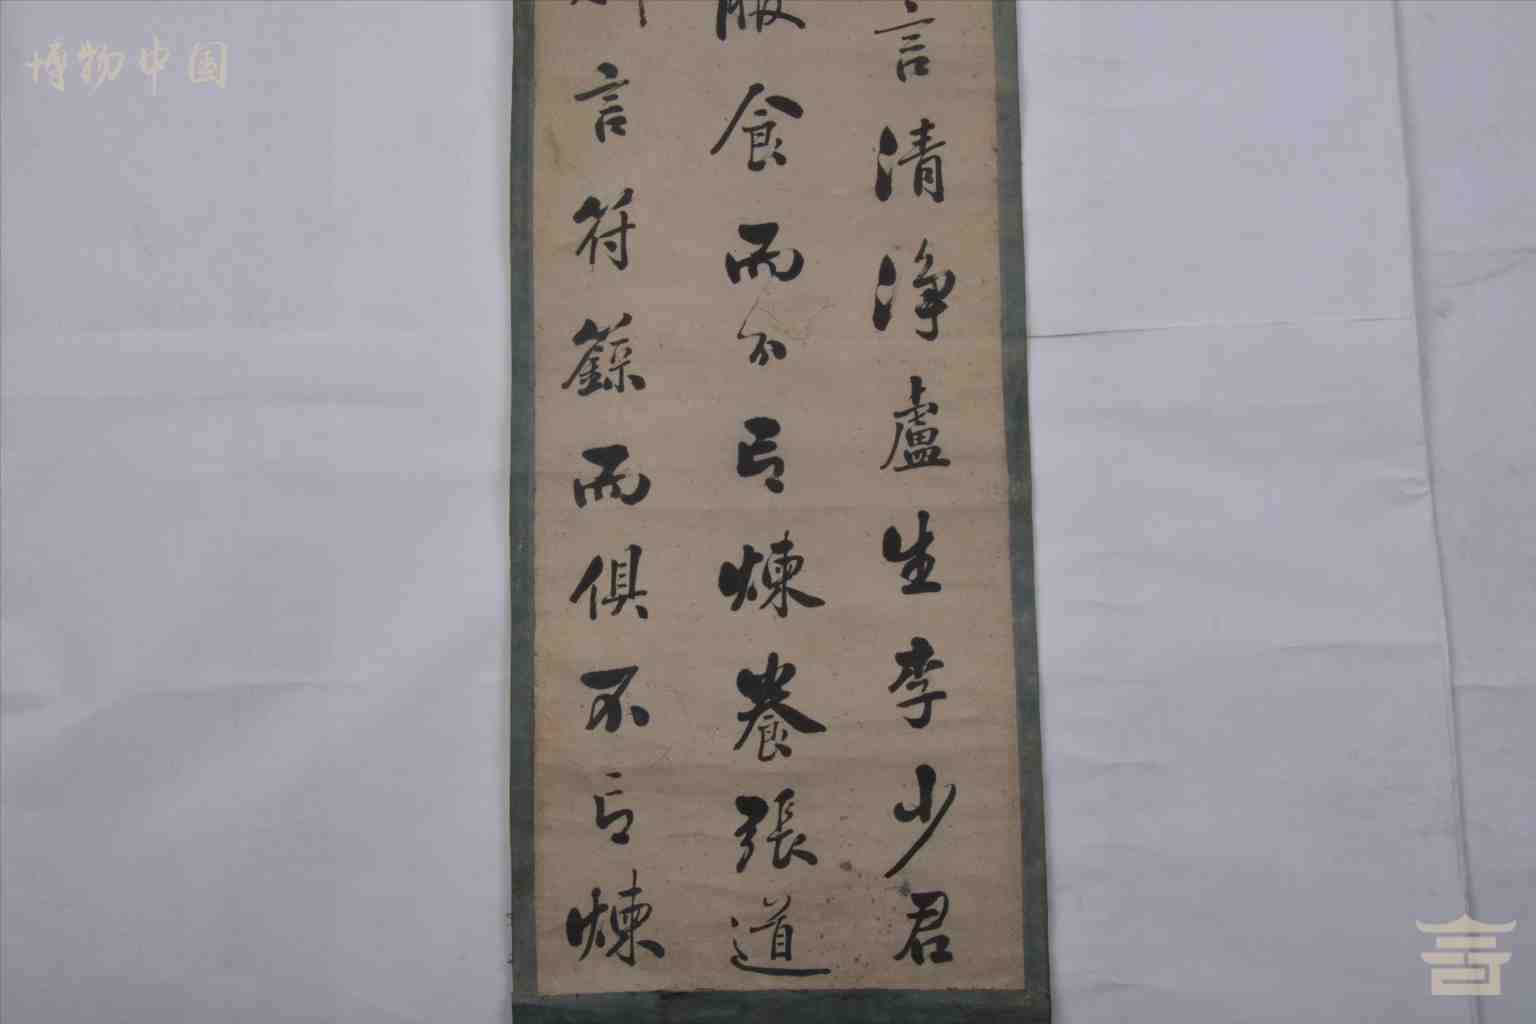 言清淨盧生李少君
服食而不言煉養張道
言符籙而俱不言煉
博物中国